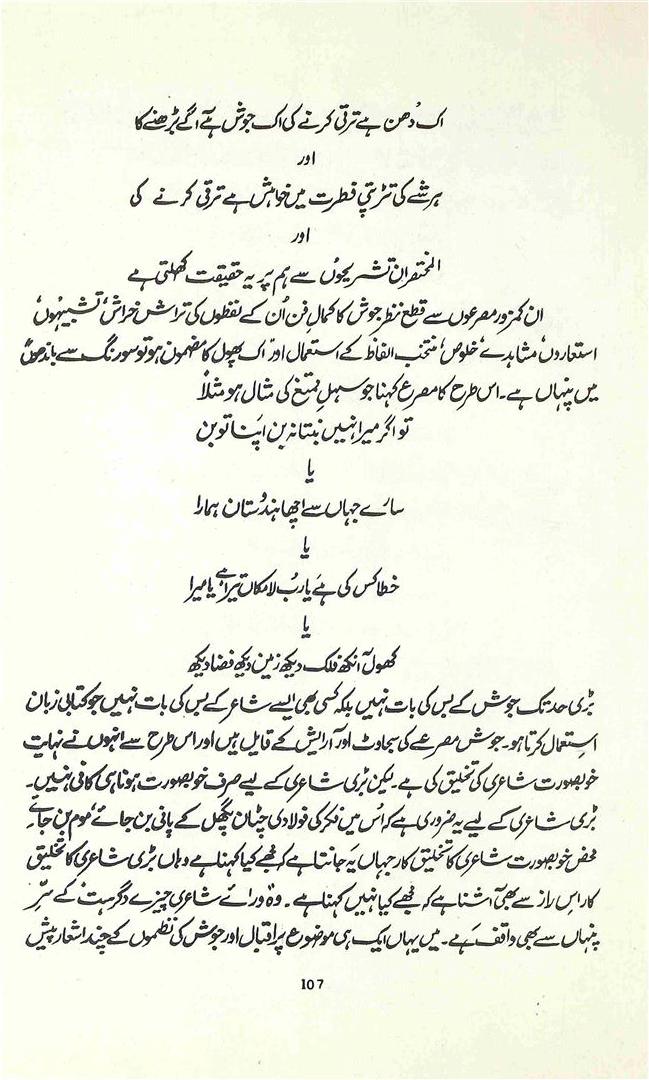 اک دُھن ہے ترقی کرنے کی اک جوش ہے آگے بڑھنے کا
اور
ہر شے کی تڑپتی فطرت میں خواہش ہے ترقی کرنے کی
اور
المختصر ان تشریحوں سے ہم پر یہ حقیقت کھلتی ہے
ان کمزور مصرعوں سے قطع نظر جوش کا کمالِ فن اُن کے لفظوں کی تراش خراش، تشبیہوں،
استعاروں، مشاہدے، خلوص، منتخب الفاظ کے استعمال اور اک پھول کا مضمون ہو تو سو رنگ سے باندھوں
میں پنہاں ہے۔ اس طرح کا مصرع کہنا جو سہلِ ممتنع کی مثال ہو مثلاً
تو اگر میرا نہیں بنتا نہ بن اپنا تو بن
یا
سارے جہاں سے اچھا ہندُستان ہمارا
یا
خطا کس کی ہے یا رب لامکاں تیرا ہے یا میرا
یا
کھول آنکھ فلک دیکھ زمین دیکھ فضا دیکھ
بڑی حد تک جوش کے بس کی بات نہیں بلکہ کسی بھی ایسے شاعر کے بس کی بات نہیں جو کتابی زبان
استعمال کرتا ہو۔ جوش مصرعے کی سجاوٹ اور آرایش کے قایل ہیں اور اس طرح سے انہوں نے نہایت
خوبصورت شاعری کی تخلیق کی ہے۔ لیکن بڑی شاعری کے لیے صرف خوبصورت ہونا ہی کافی نہیں۔
بڑی شاعری کے لیے یہ ضروری ہے کہ اُس میں فکر کی فولادی چٹان پگھل کے پانی بن جائے، موم بن جائے۔
محض خوبصورت شاعری کا تخلیق کار جہاں یہ جانتا ہے کہ مجھے کیا کہنا ہے وہاں بڑی شاعری کا تخلیق
کار اس راز سے بھی آشنا ہے کہ مجھے کیا نہیں کہنا ہے۔ وہ ورائے شاعری چیزے دگر ہست کے سرِّ
پنہاں سے بھی واقف ہے۔ میں یہاں ایک ہی موضوع پر اقبال اور جوش کی نظموں کے چند اشعار پیش
107